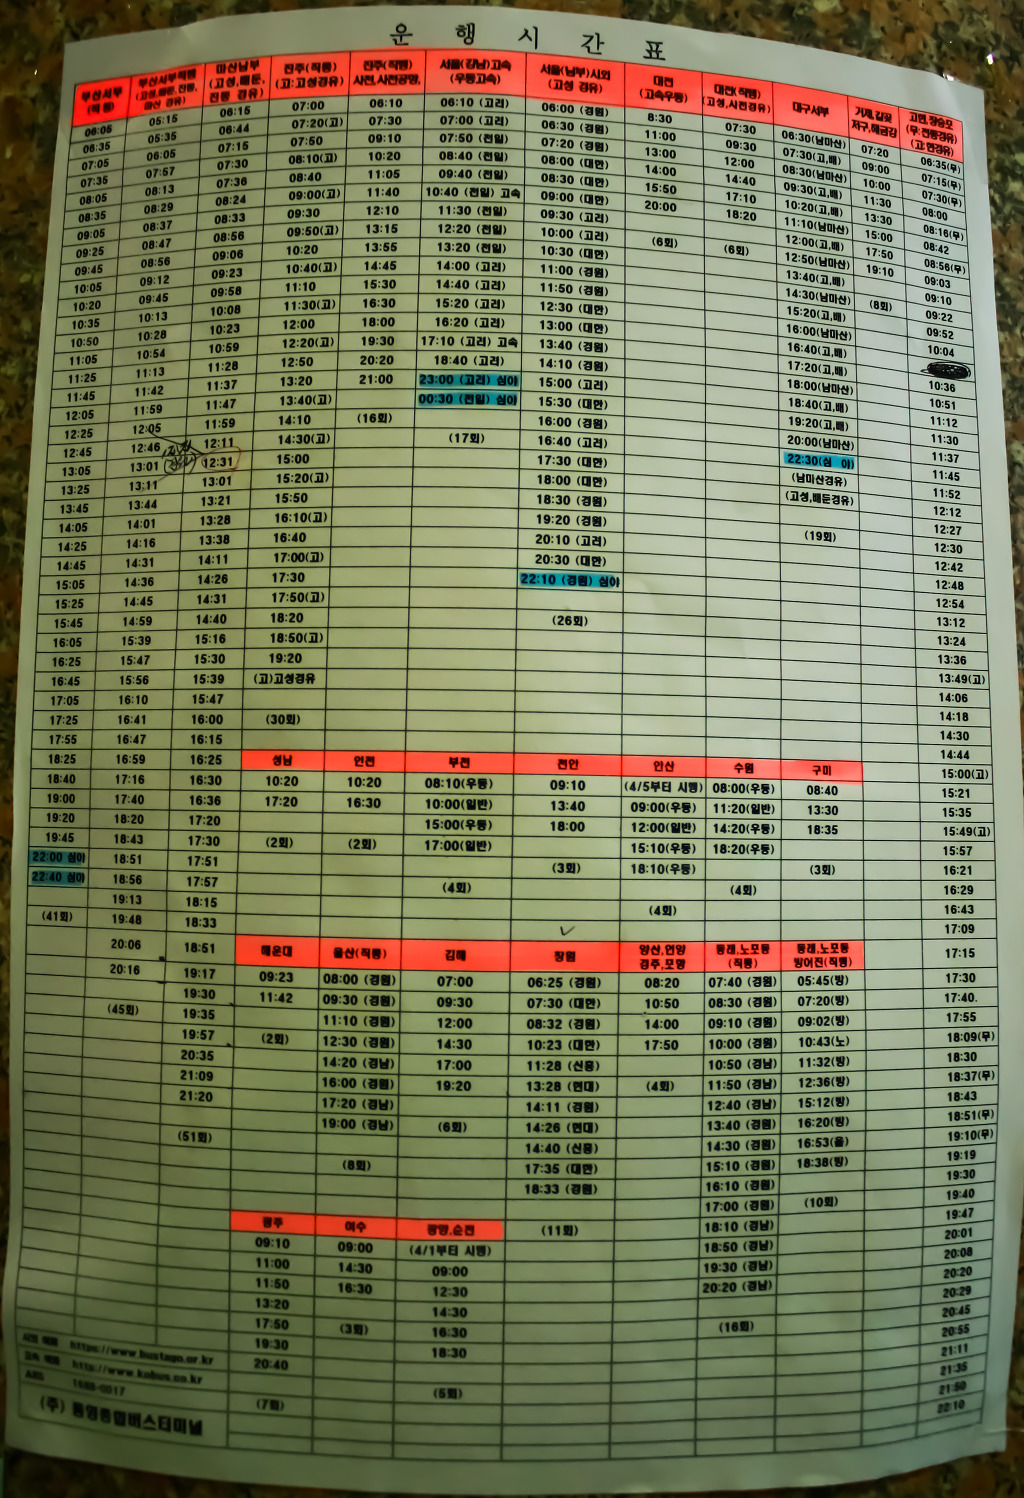 운 행 시 간 표
부산서부
(직통)
06:05
06:35
07:05
07:35
08:05
08:35
09:05
09:25
09:45
10:05
10:20
10:35
10:50
11:05
11:25
11:45
12:05
12:25
12:45
13:05
13:25
13:45
14:05
14:25
14:45
15:05
15:25
15:45
16:05
16:25
16:45
17:05
17:25
17:55
18:25
18:40
19:00
19:20
19:45
22:00 심야
22:40 심야
(41회)
부산서부직행
(고성,배둔,진동,
마산 경유)
05:15
05:35
06:05
07:57
08:13
08:29
08:37
08:47
08:56
09:12
09:45
10:13
10:28
10:54
11:13
11:42
11:59
12:05
12:46
13:01
13:11
13:44
14:01
14:16
14:31
14:36
14:45
14:59
15:39
15:47
15:56
16:10
16:41
16:47
16:59
17:16
17:40
18:20
18:43
18:51
18:56
19:13
19:48
20:06
20:16
(45회)
마산남부
(고성,배둔,
진동 경유)
06:15
06:44
07:15
07:30
07:36
08:24
08:33
08:56
09:06
09:23
09:58
10:08
10:23
10:59
11:28
11:37
11:47
11:59
12:11
12:31
13:01
13:21
13:28
13:38
14:11
14:26
14:31
14:40
15:16
15:30
15:39
15:47
16:00
16:15
16:25
16:30
16:36
17:20
17:30
17:51
17:57
18:15
18:33
18:51
19:17
19:30
19:35
19:57
20:35
21:09
21:20
(51회)
진주(직통)
(고:고성경유)
07:00
07:20(고)
07:50
08:10(고)
08:40
09:00(고)
09:30
09:50(고)
10:20
10:40(고)
11:10
11:30(고)
12:00
12:20(고)
12:50
13:20
13:40(고)
14:10
14:30(고)
15:00
15:20(고)
15:50
16:10(고)
16:40
17:00(고)
17:30
17:50(고)
18:20
18:50(고)
19:20
(고)고성경유
(30회)
진주(직행)
사천,사천공항,
06:10
07:30
09:10
10:20
11:05
11:40
12:10
13:15
13:55
14:45
15:30
16:30
18:00
19:30
20:20
21:00
(16회)
서울(강남)고속
(우등고속)
06:10 (고려)
07:00 (고려)
07:50 (전일)
08:40 (전일)
09:40 (전일)
10:40 (전일) 고속
11:30 (전일)
12:20 (전일)
13:20 (전일)
14:00 (고려)
14:40 (고려)
15:20 (고려)
16:20 (고려)
17:10 (고려) 고속
18:40 (고려)
23:00 (고려) 심야
00:30 (전일) 심야
(17회)
서울(남부)시외
(고성 경유)
06:00 (경원)
06:30 (경원)
07:20 (경원)
08:00 (대한)
08:30 (대한)
09:00 (대한)
09:30 (고려)
10:00 (고려)
10:30 (대한)
11:00 (경원)
11:50 (경원)
12:30 (대한)
13:00 (대한)
13:40 (경원)
14:10 (경원)
15:00 (고려)
15:30 (대한)
16:00 (경원)
16:40 (고려)
17:30 (대한)
18:00 (대한)
18:30 (경원)
19:20 (경원)
20:10 (고려)
20:30 (대한)
22:10 (경원) 심야
(26회)
대전
(고속우등)
8:30
11:00
13:00
14:00
15:50
20:00
(6회)
대전(직행)
(고성,사천경유)
07:30
09:30
12:00
14:40
17:10
18:20
(6회)
대구서부
06:30(남마산)
07:30(고,배)
08:30(남마산)
09:30(고,배)
10:20(고,배)
11:10(남마산)
12:00(고,배)
12:50(남마산)
13:40(고,배)
14:30(남마산)
15:20(고,배)
16:00(남마산)
16:40(고,배)
17:20(고,배)
18:00(남마산)
18:40(고,배)
19:20(고,배)
20:00(남마산)
22:30(심 야)
(남마산경유)
(고성,배둔경유)
(19회)
거제,갈곶
저구,해금강
07:20
09:00
10:00
11:30
13:30
15:00
17:50
19:10
(8회)
고현,장승포
(무:전통경유)
(고:현경유)
06:35(무)
07:15(무)
07:30(무)
08:00
08:16(무)
08:42
08:56(무)
09:03
09:10
09:22
09:52
10:04
10:36
10:51
11:12
11:30
11:37
11:45
11:52
12:12
12:27
12:30
12:42
12:48
12:54
13:12
13:24
13:36
13:49(고)
14:06
14:18
14:30
14:44
15:00(고)
15:21
15:35
15:49(고)
15:57
16:21
16:29
16:43
17:09
17:15
17:30
17:40.
17:55
18:09(무)
18:30
18:37(무)
18:43
18:51(무)
19:10(무)
19:19
19:30
19:40
19:47
20:01
20:08
20:20
20:29
20:45
20:55
21:11
21:35
21:50
22:10
성남
10:20
17:20
(2회)
인천
10:20
16:30
(2회)
부천
08:10(우등)
10:00(일반)
15:00(우등)
17:00(일반)
(4회)
천안
09:10
13:40
18:00
(3회)
안산
(4/5부터 시행)
09:00(우등)
12:00(일반)
15:10(우등)
18:10(우등)
(4회)
수원
08:00(우등)
11:20(일반)
14:20(우등)
18:20(우등)
(4회)
구미
08:40
13:30
18:35
(3회)
해운대
09:23
11:42
(2회)
울산(직통)
08:00 (경원)
09:30 (경원)
11:10 (경원)
12:30 (경원)
14:20 (경남)
16:00 (경원)
17:20 (경남)
19:00 (경남)
(8회)
김해
07:00
09:30
12:00
14:30
17:00
19:20
(6회)
창원
06:25 (경원)
07:30 (대한)
08:32 (경원)
10:23 (대한)
11:28 (신흥)
13:28 (현대)
14:11 (경원)
14:26 (현대)
14:40 (신흥)
17:35 (대한)
18:33 (경원)
(11회)
양산,언양
경주,포항
08:20
10:50
14:00
17:50
(4회)
동래,노포동
(직통)
07:40 (경원)
08:30 (경원)
09:10 (경원)
10:00 (경원)
10:50 (경남)
11:50 (경남)
12:40 (경남)
13:40 (경원)
14:30 (경원)
15:10 (경원)
16:10 (경원)
17:00 (경원)
18:10 (경남)
18:50 (경남)
19:30 (경남)
20:20 (경남)
(16회)
동래,노포동
방어진(직통)
05:45(방)
07:20(방)
09:02(방)
10:43(노)
11:32(방)
12:36(방)
15:12(방)
16:20(방)
16:53(울)
18:38(방)
(10회)
광주
09:10
11:00
11:50
13:20
17:50
19:30
20:40
(7회)
여수
09:00
14:30
16:30
(3회)
광양,순천
(4/1부터 시행)
09:00
12:30
14:30
16:30
18:30
(5회)
시외 예매 https://www.bustago.or.kr
고속 예매 http://www.kobus.co.kr
ARS 1688-0017
(주) 통영종합버스터미널